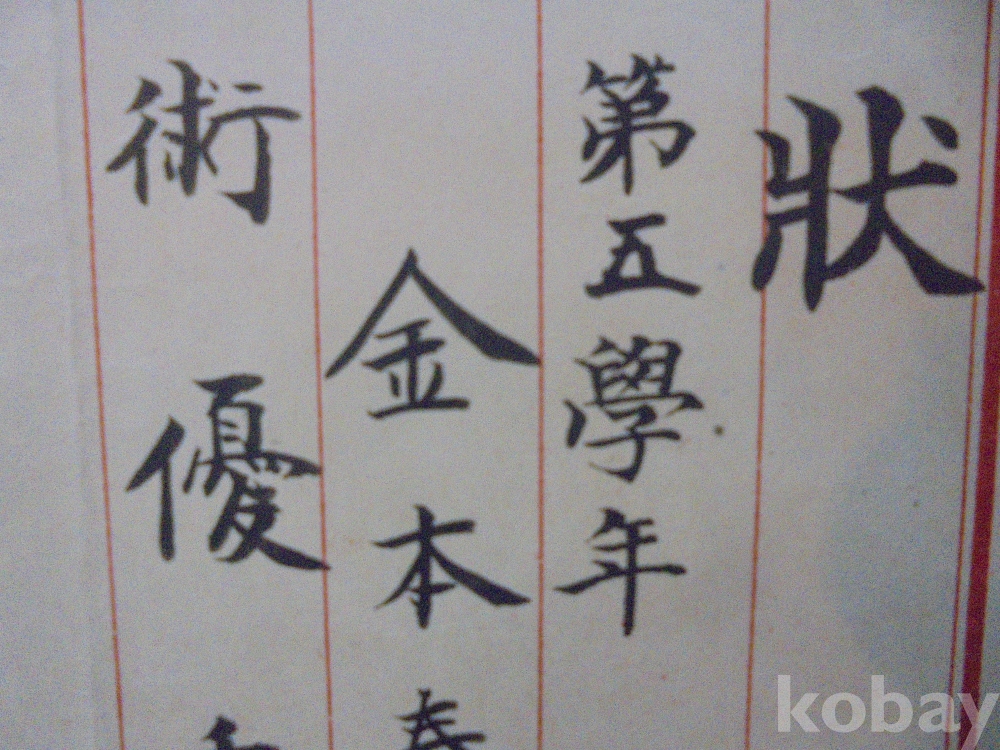 狀
第五學年
金本春
術優
kobay